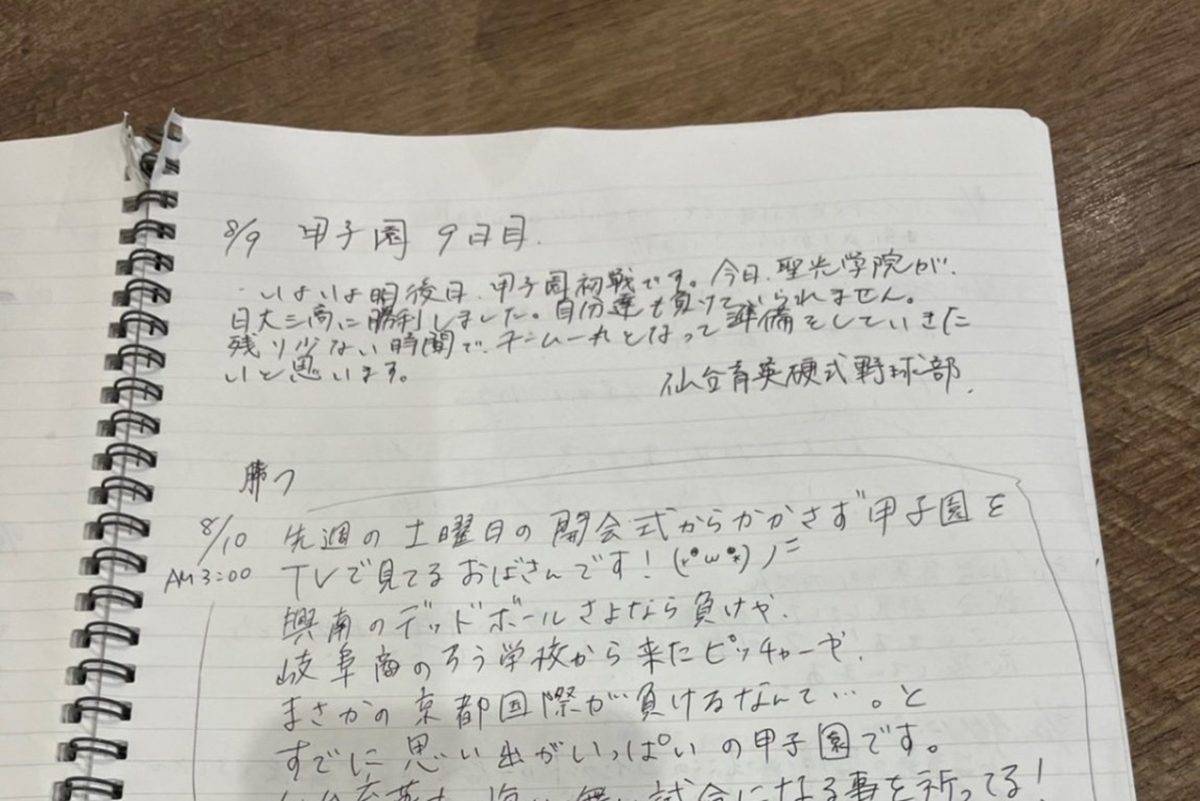 8/9 甲子園 9日目.
・いよいよ明後日、甲子園初戦です。今日、聖光学院が、
日大三高に勝利しました。自分達も負けていられません。
残り少ない時間で、チーム一丸となって準備をしていきた
いと思います。
仙台育英硬式野球部.
勝つ
8/10 先週の土曜日の開会式からかかさず甲子園を
AM3:00 TVで見てるおばさんです!
興南のデッドボールさよなら負けや、
岐阜商のろう学校から来たピッチャーや、
まさかの京都国際が負けるなんて…。と
すでに思い出がいっぱいの甲子園です。
仙台育英も悔い無い試合になる事を祈ってる!